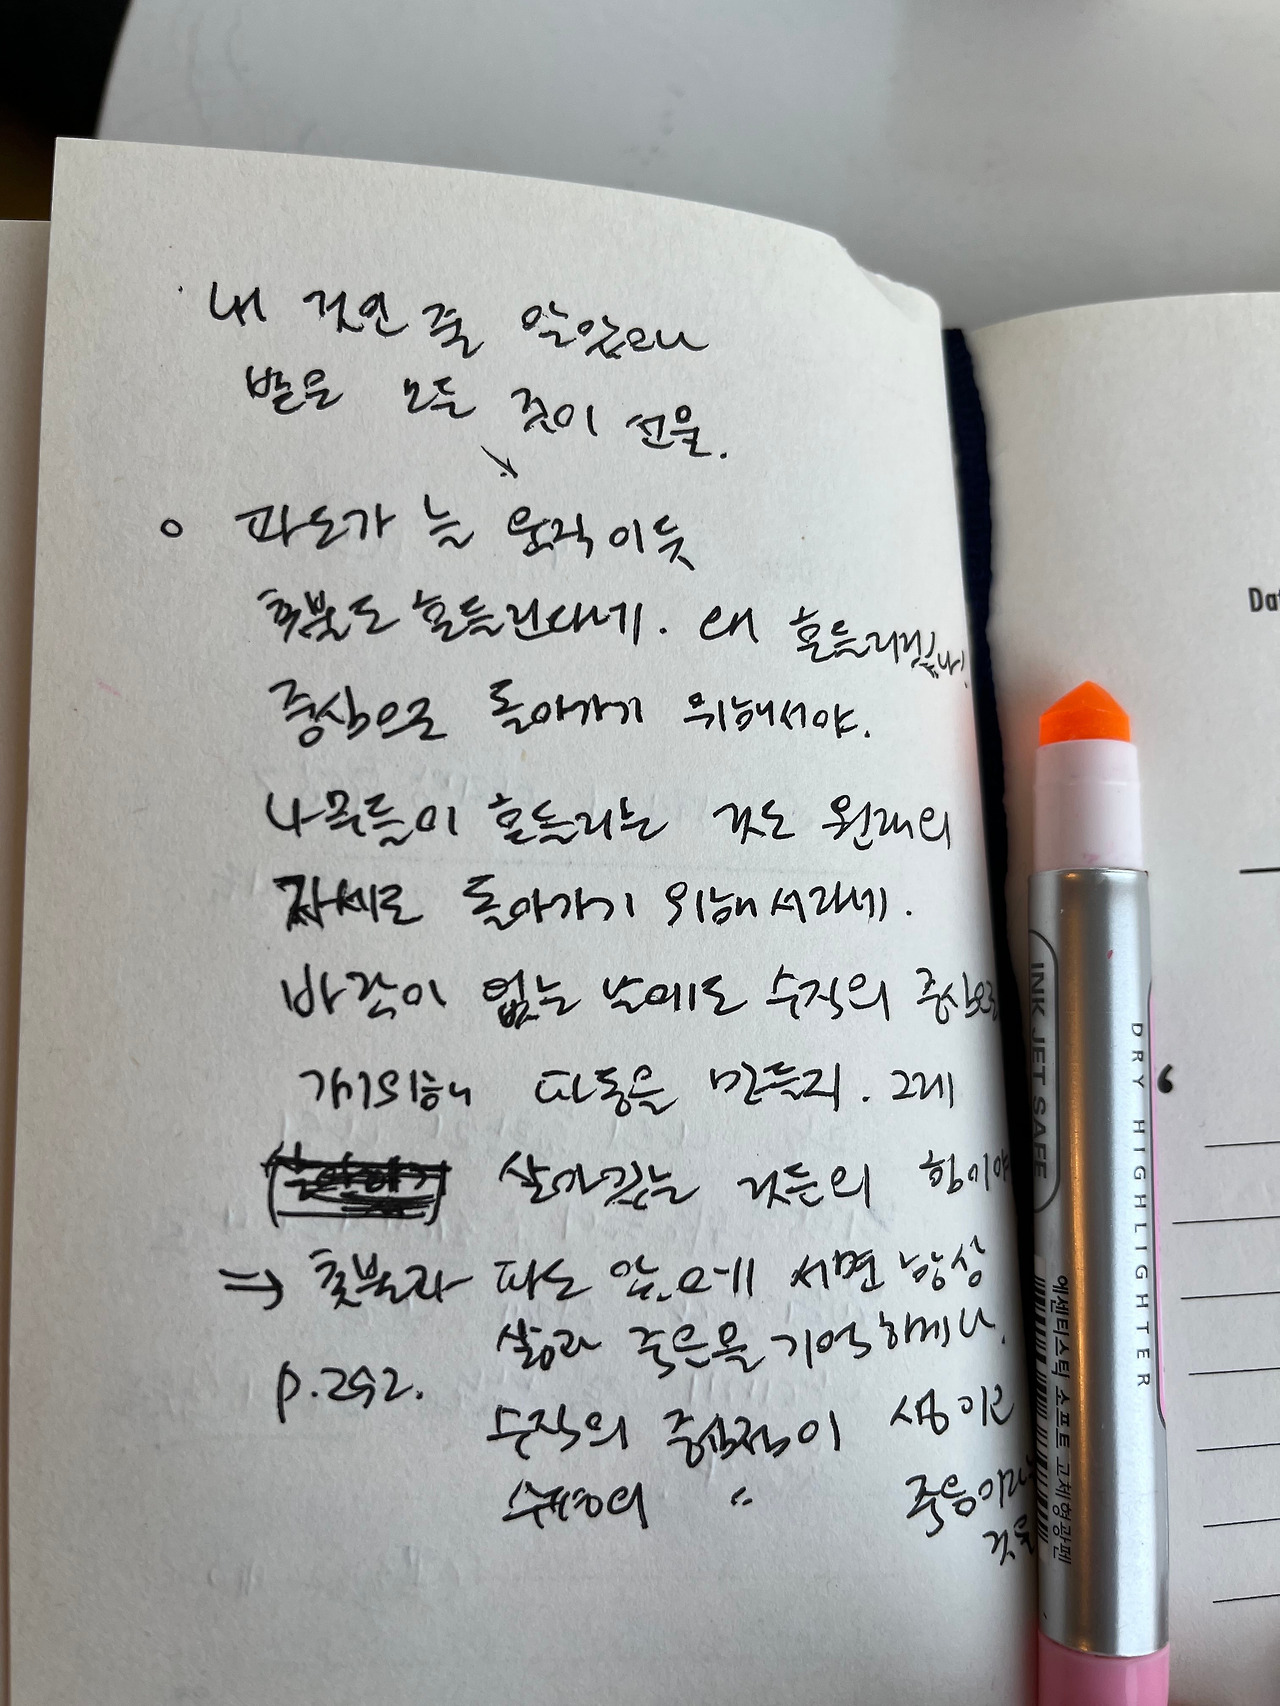 내 것인 줄 알았으나
받은 모든 것이 선물.
파도가 늘 움직이듯
촛불도 흔들린다네. 왜 흔들리겠나?
중심으로 돌아가기 위해서야.
나무들이 흔들리는 것도 원래의
자세로 돌아가기 위해서라네.
바람이 없는 날에도 수직의 중심으로
가기위해 파동을 만들지. 그게
살아있는 것들의 힘이야
⇒ 촛불과 파도 앞에 서면 항상
삶과 죽음을 기억하게나.
p.292.
수직의 중심점이 생이고
수평의 〃 죽음이라는
것을
Dat
INK JET SAFE
DRY HIGHLIGHTER
에센티스틱 소프트 고체형광펜